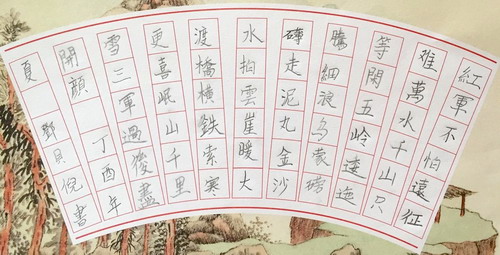 紅軍不怕遠征
难萬水千山只
等閑五岭逶迤
騰細浪乌蒙磅
礴走泥丸金沙
水拍雲崖暖大
渡橋横鉄索寒
更喜岷山千里
雪三軍過後盡
開顔 丁酉年
夏 貝倪書